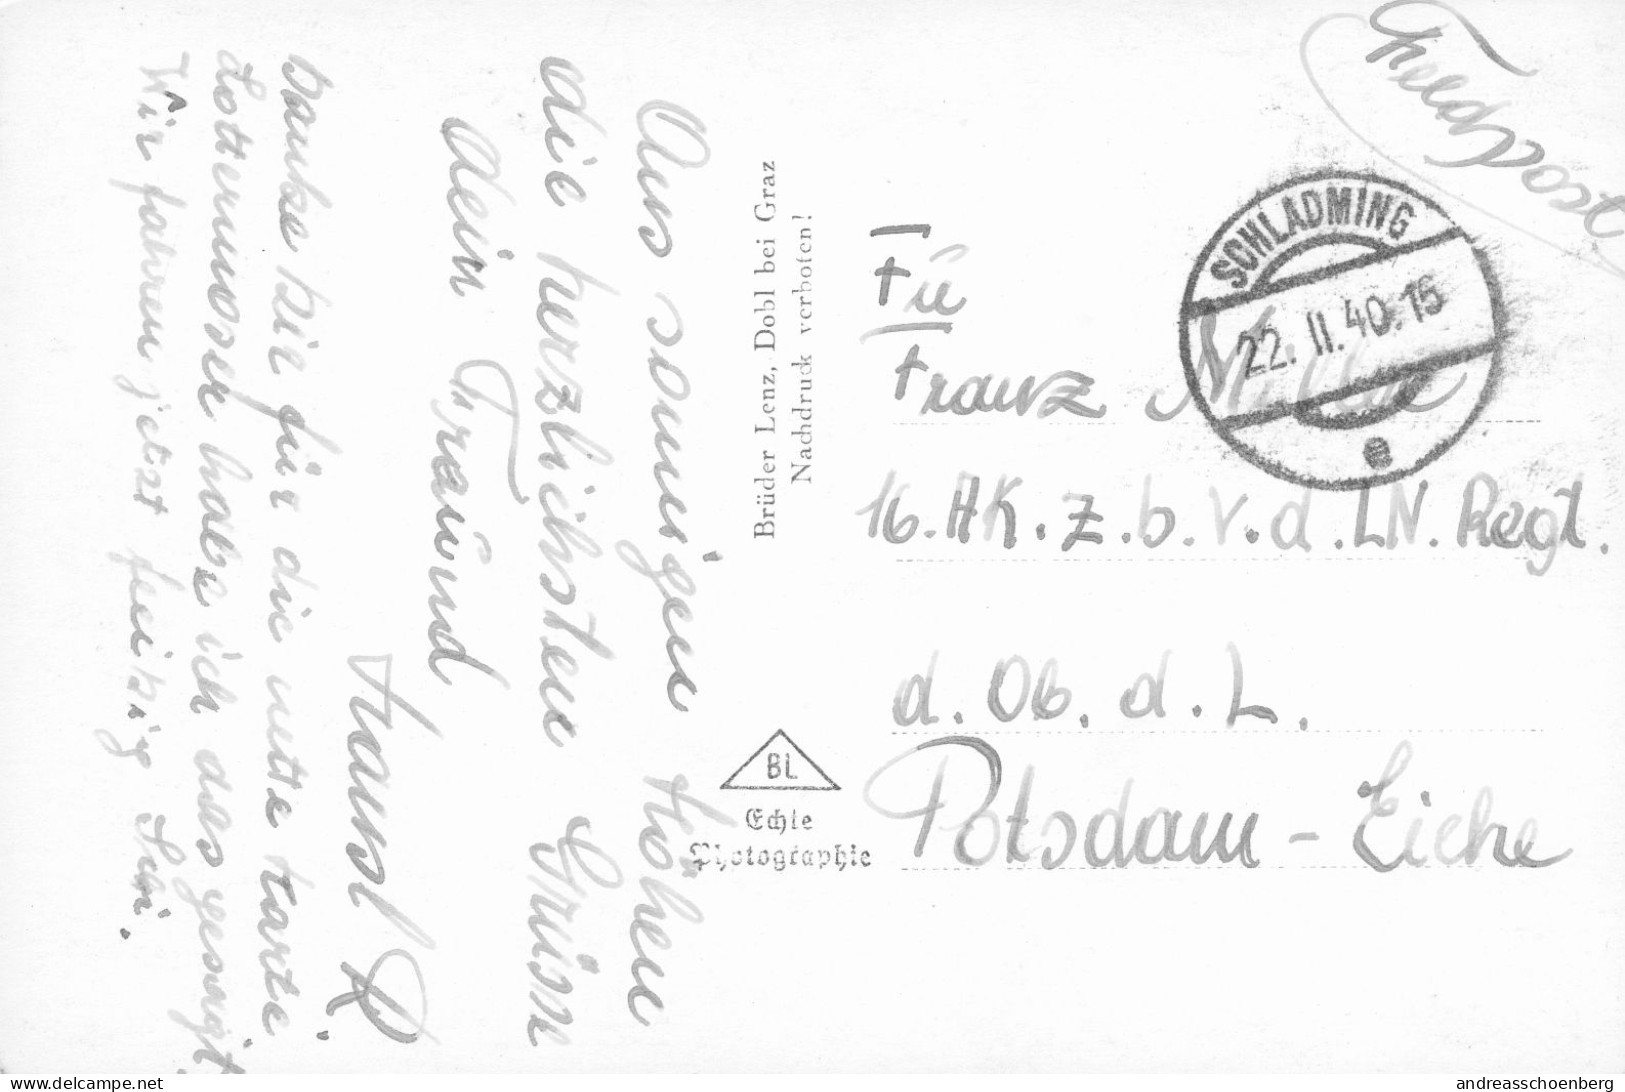 Aus sonnigen Höhen
die herzlichsten Grüsse
dein Fraund
Hansl R
Danke dir für die nette Karte.
Lottermoser habe ich das gesagt.
Wir fahren jetzt fleißig Ski.
Brüder Lenz, Dobl bei Graz
Nachdruck verboten!
BL
Echte
Photographie
Feldpost
SCHLADMING
22. II. 40. 15
e
Franz
16. HK. z. b. V. d. LN. Regt.
d. Ob. d. L.
Potsdam - Eiche
www.delcampe.net
andreasschoenberg